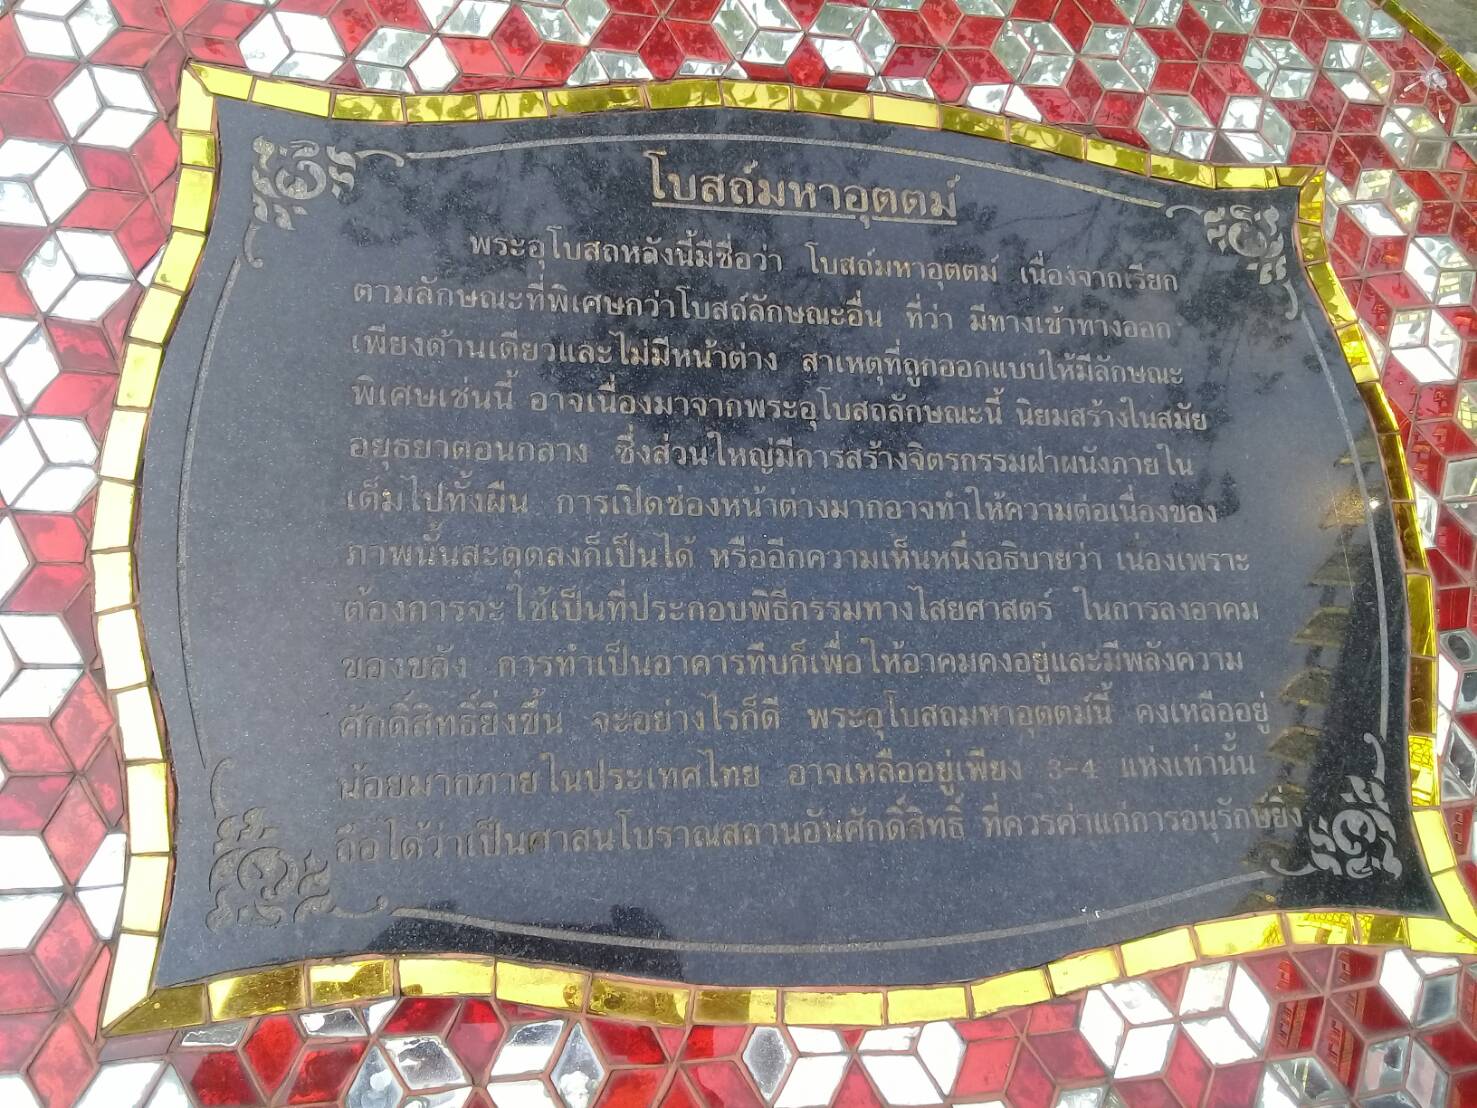 โบสถ์มหาอุตตม์
พระอุโบสถหลังนี้มีชื่อว่า โบสถ์มหาอุตตม์ เนื่องจากเรียก
ตามลักษณะที่พิเศษกว่าโบสถ์ลักษณะอื่น ที่ว่า มีทางเข้าทางออก
เพียงด้านเดียวและไม่มีหน้าต่าง สาเหตุที่ถูกออกแบบให้มีลักษณะ
พิเศษเช่นนี้ อาจเนื่องมาจากพระอุโบสถลักษณะนี้ นิยมสร้างในสมัย
อยุธยาตอนกลาง ซึ่งส่วนใหญ่มีการสร้างจิตรกรรมฝาผนังภายใน
เต็มไปทั้งผืน การเปิดช่องหน้าต่างมากอาจทำให้ความต่อเนื่องของ
ภาพนั้นสะดุดลงก็เป็นได้ หรืออีกความเห็นหนึ่งอธิบายว่า เน่องเพราะ
ต้องการจะใช้เป็นที่ประกอบพิธีกรรมทางไสยศาสตร์ ในการลงอาคม
ของขลัง การทำเป็นอาคารทึบก็เพื่อให้อาคมคงอยู่และมีพลังความ
ศักดิ์สิทธิ์ยิ่งขึ้น จะอย่างไรก็ดี พระอุโบสถมหาอุตตม์นี้ คงเหลืออยู่
น้อยมากภายในประเทศไทย อาจเหลืออยู่เพียง 3-4 แห่งเท่านั้น
ถือได้ว่าเป็นศาสนโบราณสถานอันศักดิ์สิทธิ์ ที่ควรค่าแก่การอนุรักษ์ยิ่ง